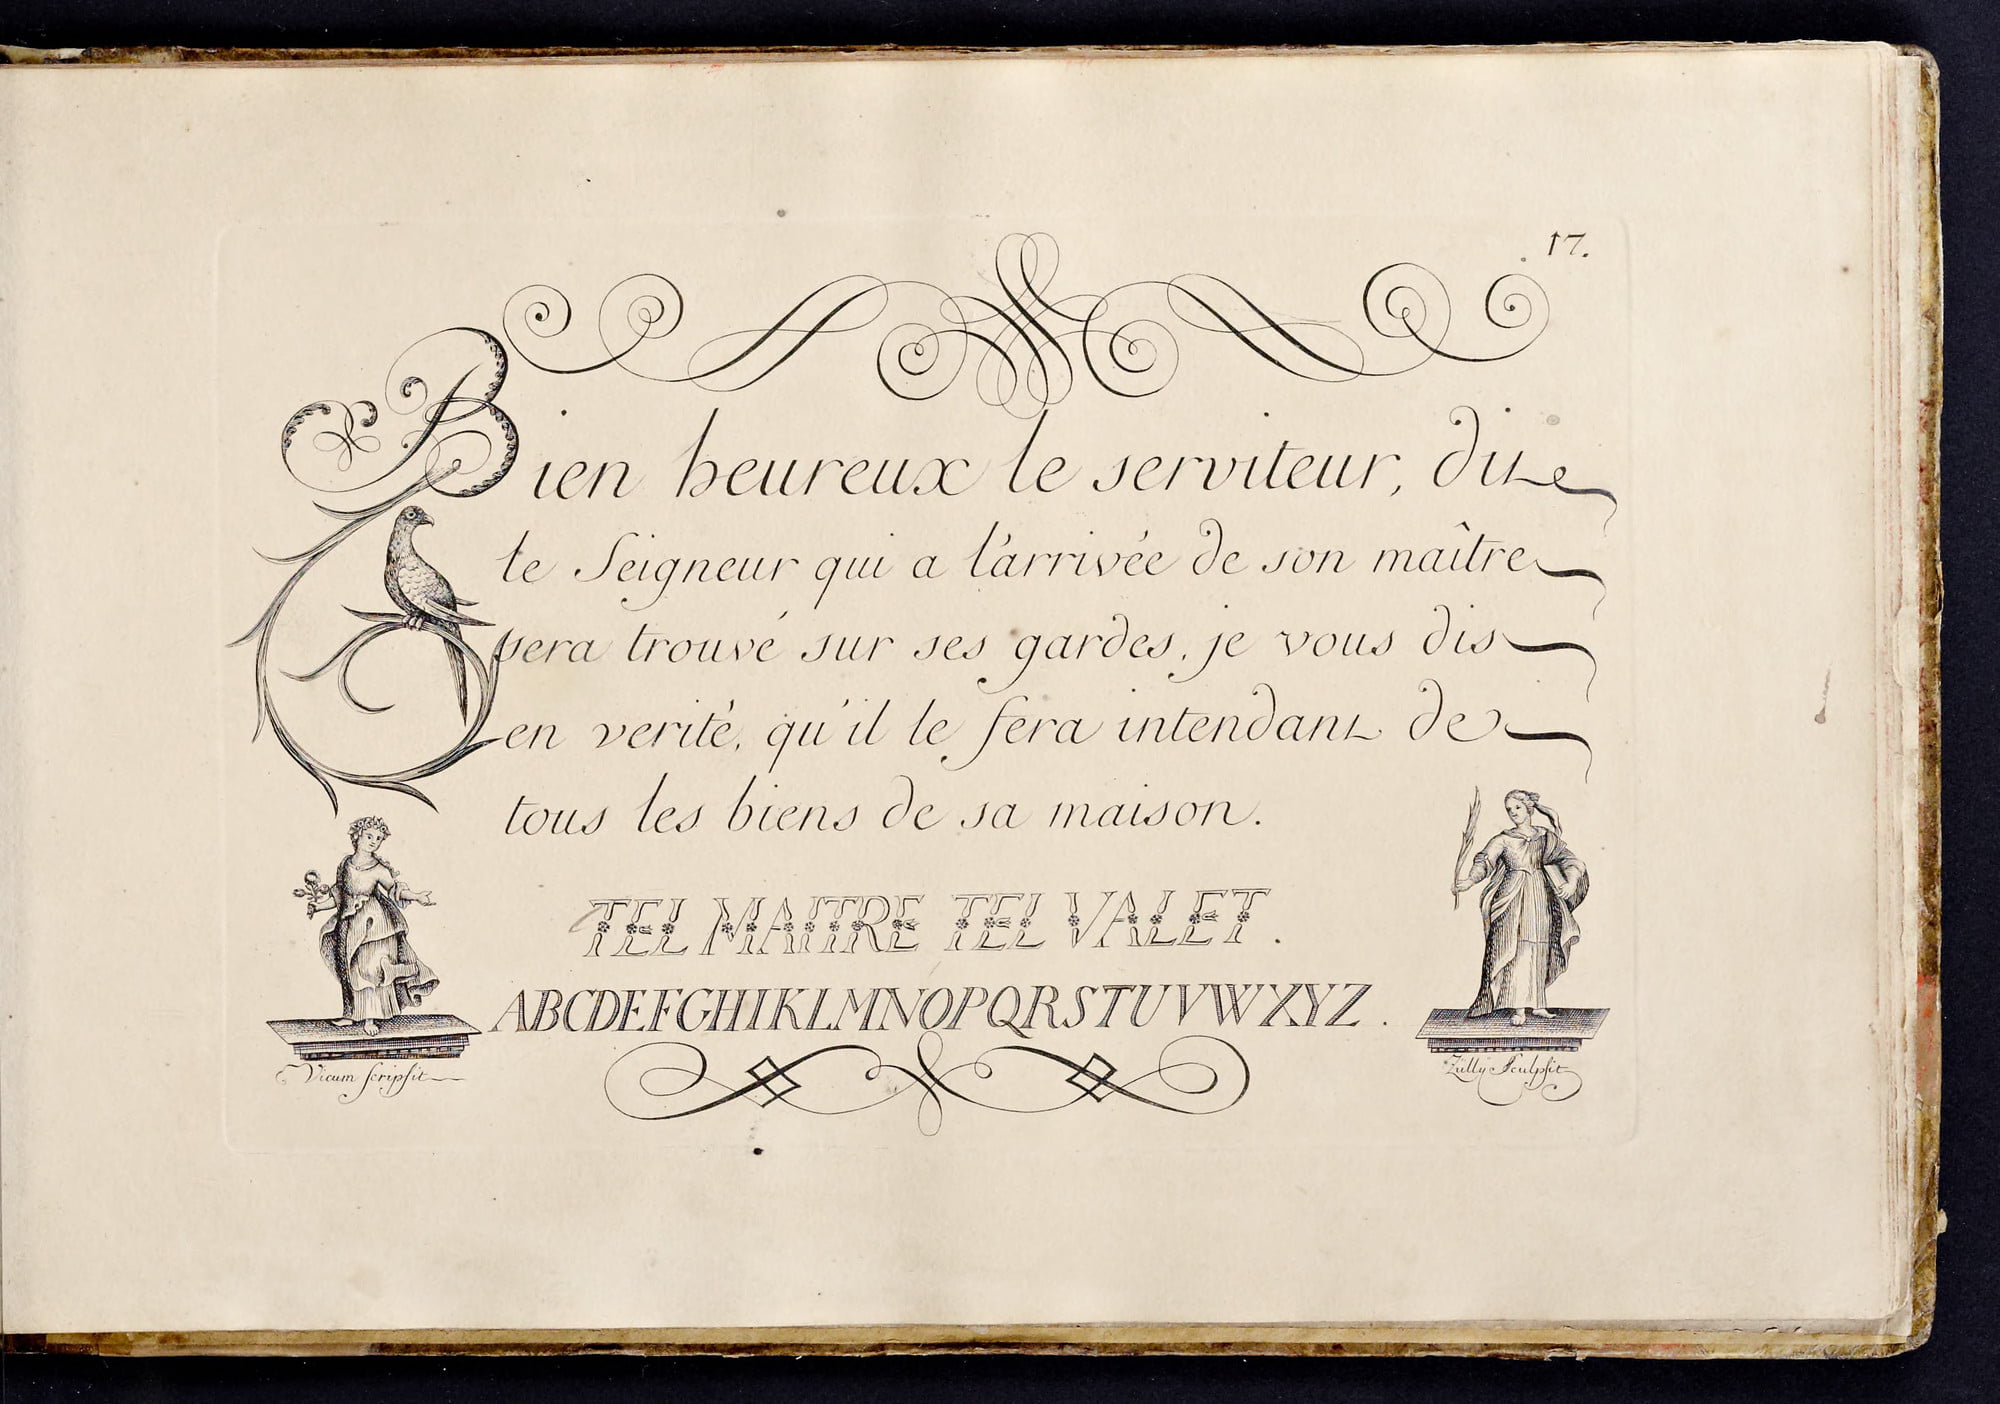 17.
Bien heureux le serviteur, dit
le Seigneur qui a l'arrivée de son maître
sera trouvé sur ses gardes, je vous dis
en verité, qu'il le fera intendant de
tous les biens de sa maison.
TEL MAITRE TEL VALET.
ABCDEFGHIKLMNOPQRSTUVWXYZ.
Vicum scripsit
Zùlly Sculpsit